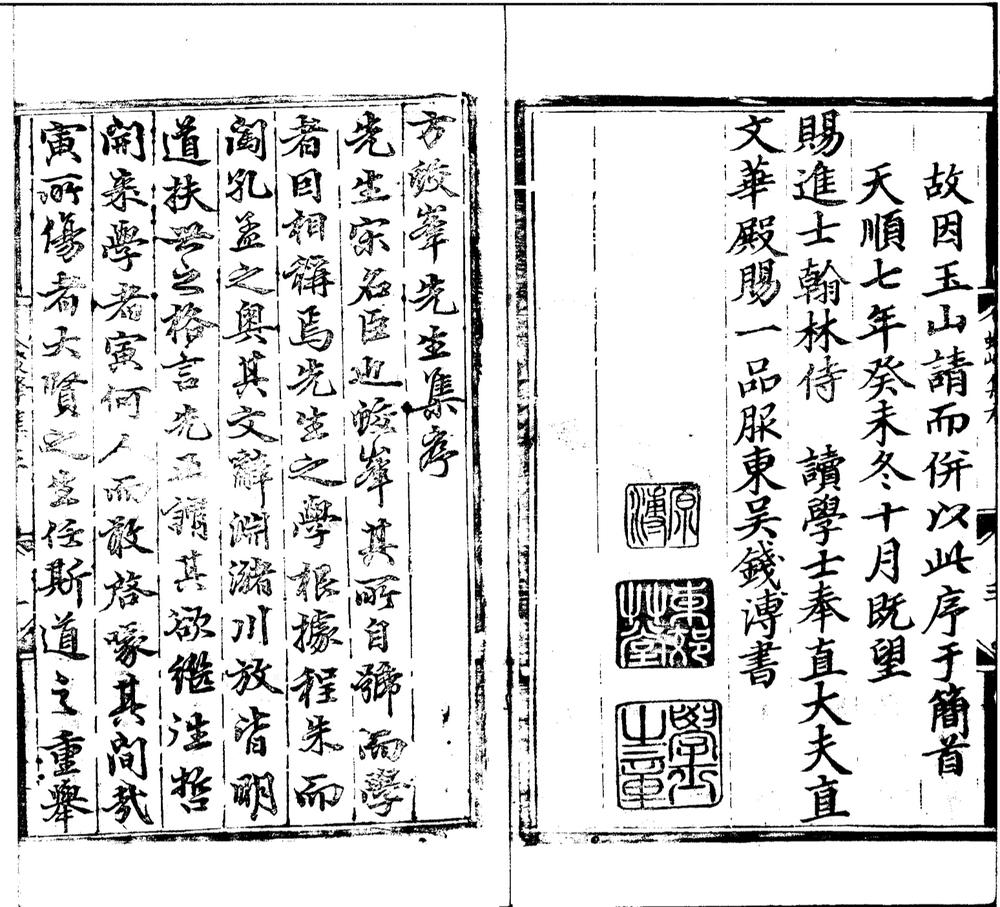 故因玉山請而併以此序于簡首
天順七年癸未冬十月既望
賜進士翰林侍 讀學士奉直大夫直
文華殿賜一品服東吳錢溥書
原溥
東郭草堂
學士之章
方蛟峯先生集序
先生宋名臣也蛟峯其所自號而學
者因相稱焉先生之學根據程朱而
閫孔孟之奧其文辭淵瀦川放皆明
道扶世之格言先正謂其欲繼往哲
開來學者寅何人而敢啓喙其間哉
寅所傷者大賢之生任斯道之重舉